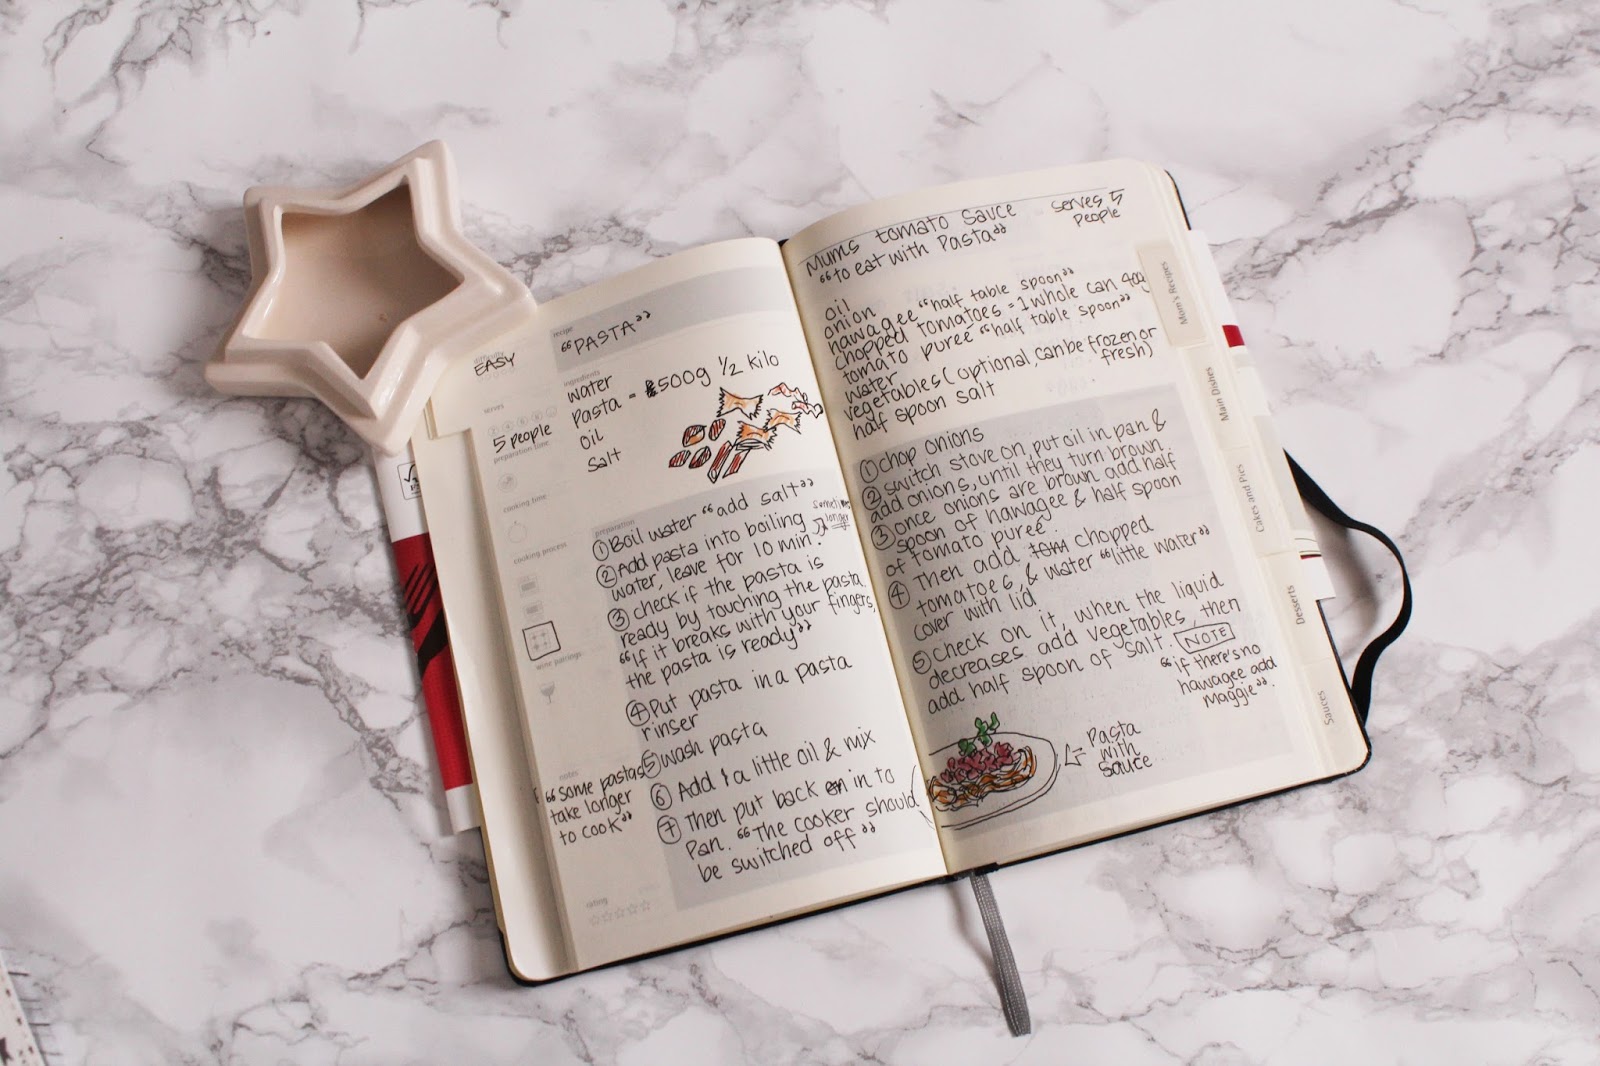 recipe
"PASTA"
difficulty
EASY
serves
5 people
preparation time
cooking time
cooking process
wine pairings
notes
"some pastas
take longer
to cook"
rating
ingredients
water
Pasta = 500g 1/2 kilo
oil
salt
preparation
① Boil water "add salt"
② Add pasta into boiling
water, leave for 10 min.
longer
③ check if the pasta is
ready by touching the pasta
"if it breaks with your fingers,
the pasta is ready"
④ Put pasta in a pasta
rinser
⑤ wash pasta
⑥ Add a little oil & mix
⑦ Then put back in to
Pan. "The cooker should
be switched off"
Mums tomato sauce
"to eat with Pasta"
- serves 5
people
oil
onion
hawagee "half table spoon"
chopped tomatoes = 1 whole can 400g
tomato pureé "half table spoon"
water
vegetables (optional, can be frozen or
fresh)
half spoon salt
① chop onions
② switch stove on, put oil in pan &
add onions, until they turn brown
③ once onions are brown add half
spoon of hawagee & half spoon
of tomato pureé
④ Then add tom chopped
tomatoes, & water "little water"
cover with lid
⑤ check on it, when the liquid
decreases add vegetables, then
add half spoon of salt.
NOTE
"if there's no
hawagee add
maggie"
Pasta
with
sauce
Mom's Recipes
Main Dishes
Cakes and Pies
Desserts
Sauces